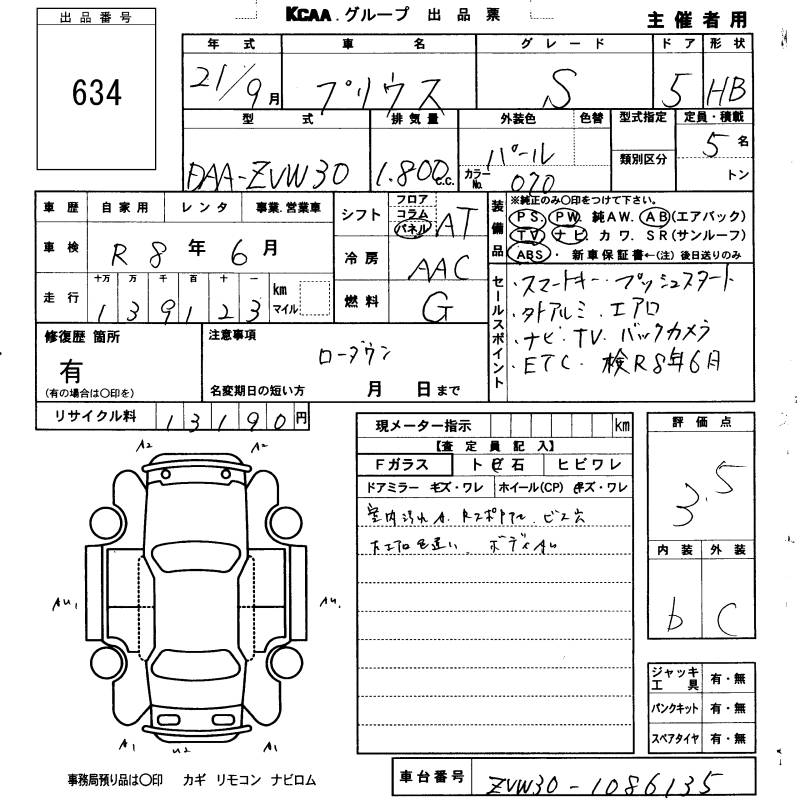 出品番号
634
KCAA グループ 出品票
主催者用
年式 車名 グレード ドア 形状
21/9月 プリウス S 5 HB
型式 排気量 外装色 色替 型式指定 定員・積載
DAA-ZVW30 1.800c.c. パール 5名
カラーNo. 070 類別区分 トン
車歴 自家用 レンタ 事業.営業車
車検 R8年6月
走行 十万 万 千 百 十 一
139123 km マイル
シフト フロア コラム パネル AT
冷房 AAC
燃料 G
装備品 ※純正のみ〇印をつけて下さい。
PS. PW. 純AW. AB(エアバック)
TV ナビ. カワ. SR(サンルーフ)
ABS. 新車保証書←(注)後日送りのみ
セールスポイント
・スマートキー・プッシュスタート
・タトアルミ・エアロ
・ナビ・TV・バックカメラ
・ETC・検R8年6月
修復歴 箇所
有
(有の場合は〇印を)
注意事項
ローダウン
名変期日の短い方 月 日まで
リサイクル料 13190円
現メーター指示 km
【査定員記入】
Fガラス トビ石 ヒビワレ
ドアミラー キズ・ワレ ホイール(CP) キズ・ワレ
室内汚れA. ビス穴
色違い. ボディAU
評価点
3.5
内装 外装
b C
A2 A2
AU1 AU1
A1 U2 A1
ジャッキ工具 有・無
パンクキット 有・無
スペアタイヤ 有・無
事務局預り品は〇印 カギ リモコン ナビロム
車台番号 ZVW30-1086135